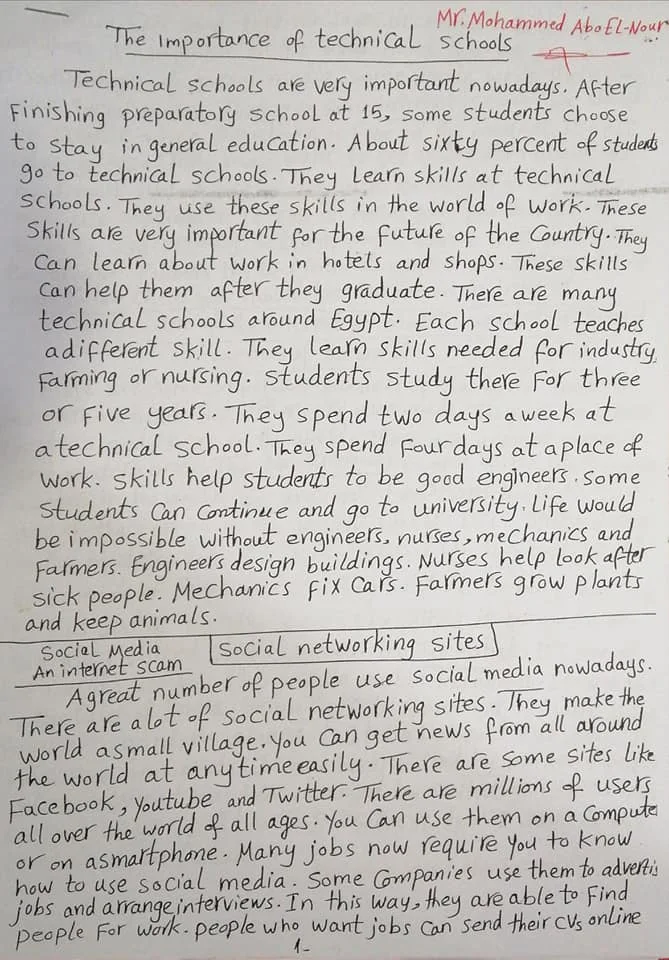 Mr. Mohammed Abo El-Nour
The importance of technical schools
Technical schools are very important nowadays. After
Finishing preparatory school at 15, some students choose
to stay in general education. About sixty percent of students
go to technical schools. They Learn skills at technical
schools. They use these skills in the world of work. These
skills are very important for the future of the Country. They
Can learn about work in hotels and shops. These skills
Can help them after they graduate. There are many
technical schools around Egypt. Each school teaches
a different skill. They learn skills needed for industry,
Farming or nursing. Students study there For three
or Five years. They spend two days a week at
a technical school. They spend Four days at a place of
work. Skills help students to be good engineers. Some
students Can Continue and go to university. Life would
be impossible without engineers, nurses, mechanics and
Farmers. Engineers design buildings. Nurses help look after
sick people. Mechanics Fix Cars. Farmers grow plants
and keep animals.
Social Media
An internet scam
Social networking sites
A great number of people use social media nowadays.
There are a lot of social networking sites. They make the
world a small village. You Can get news from all around
the world at any time easily. There are some sites like
Facebook, Youtube and Twitter. There are millions of users
all over the world of all ages. You Can use them on a Compute
or on a smartphone. Many jobs now require you to know
how to use social media. Some Companies use them to adverti
jobs and arrange interviews. In this way, they are able to Find
people For work. people who want jobs Can send their CVs online
1-